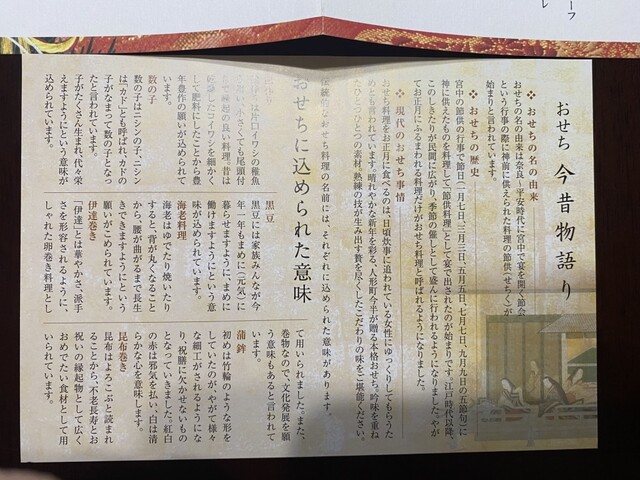 ーフ
レ
おせち 今昔物語り
❖ おせちの名の由来
おせちの名の由来は奈良~平安時代に宮中で宴を開く節会
という行事の際に神前に供えられた料理の節供(せちく)が
始まりと言われています。
❖ おせちの歴史
宮中の節供の行事で節日(一月七日、三月三日、五月五日、七月七日、九月九日の五節句)に
神に供えたものを料理して「節供料理」として宴で出されたのが始まりです。江戸時代以降、
このしきたりが民間に広がり、季節の催しとして盛んに行われるようになりました。やが
てお正月にふるまわれる料理だけがおせち料理と呼ばれるようになりました。
❖ 現代のおせち事情
おせち料理をお正月に食べるのは、日頃炊事に追われている女性にゆっくりしてもらうた
めとも言われています。晴れやかな新年を彩る、人形町今半が贈る本格おせち。吟味を重ね
たひとつひとつの素材、熟練の技が生み出す贅を尽くしたこだわりの味をご堪能ください。
おせちに込められた意味
伝統的なおせち料理の名前には、それぞれに込められた意味があります。
は片口イワシの稚魚
小さくても尾頭付
で縁起の良い料理。昔は
乾燥したコイワシを細かく
して肥料にしたことから豊
年豊作の願いが込められて
います。
数の子
数の子はニシンの子。ニシン
は「カド」とも呼ばれ、カドの
子がなまって数の子となっ
たと言われています。
子がたくさん生まれ、代々栄
えますようにという意味が
込められています。
黒豆
黒豆には家族みんなが今
年一年もまめに(元気に)
暮らせますように、まめに
働けますようにという意
味が込められています。
海老料理
海老はゆでたり焼いたり
すると、背が丸くなること
から、腰が曲がるまで長生
きできますようにという
願いがこめられています。
伊達巻き
「伊達」とは華やかさ、派手
さを形容されるように、
しゃれた卵巻き料理とし
て用いられました。また、
巻物なので、文化発展を願
う意味もあると言われて
います。
蒲鉾
初めは竹輪のような形を
していたのが、やがて様々
な細工がされるようにな
り、祝膳に欠かせないもの
となっていきました。紅白
の赤は邪気を払い、白は清
らかな心を意味します。
昆布巻き
昆布はよろこぶと読まれ
ることから、不老長寿とお
祝いの縁起物として広く
おめでたい食材として用
いられています。